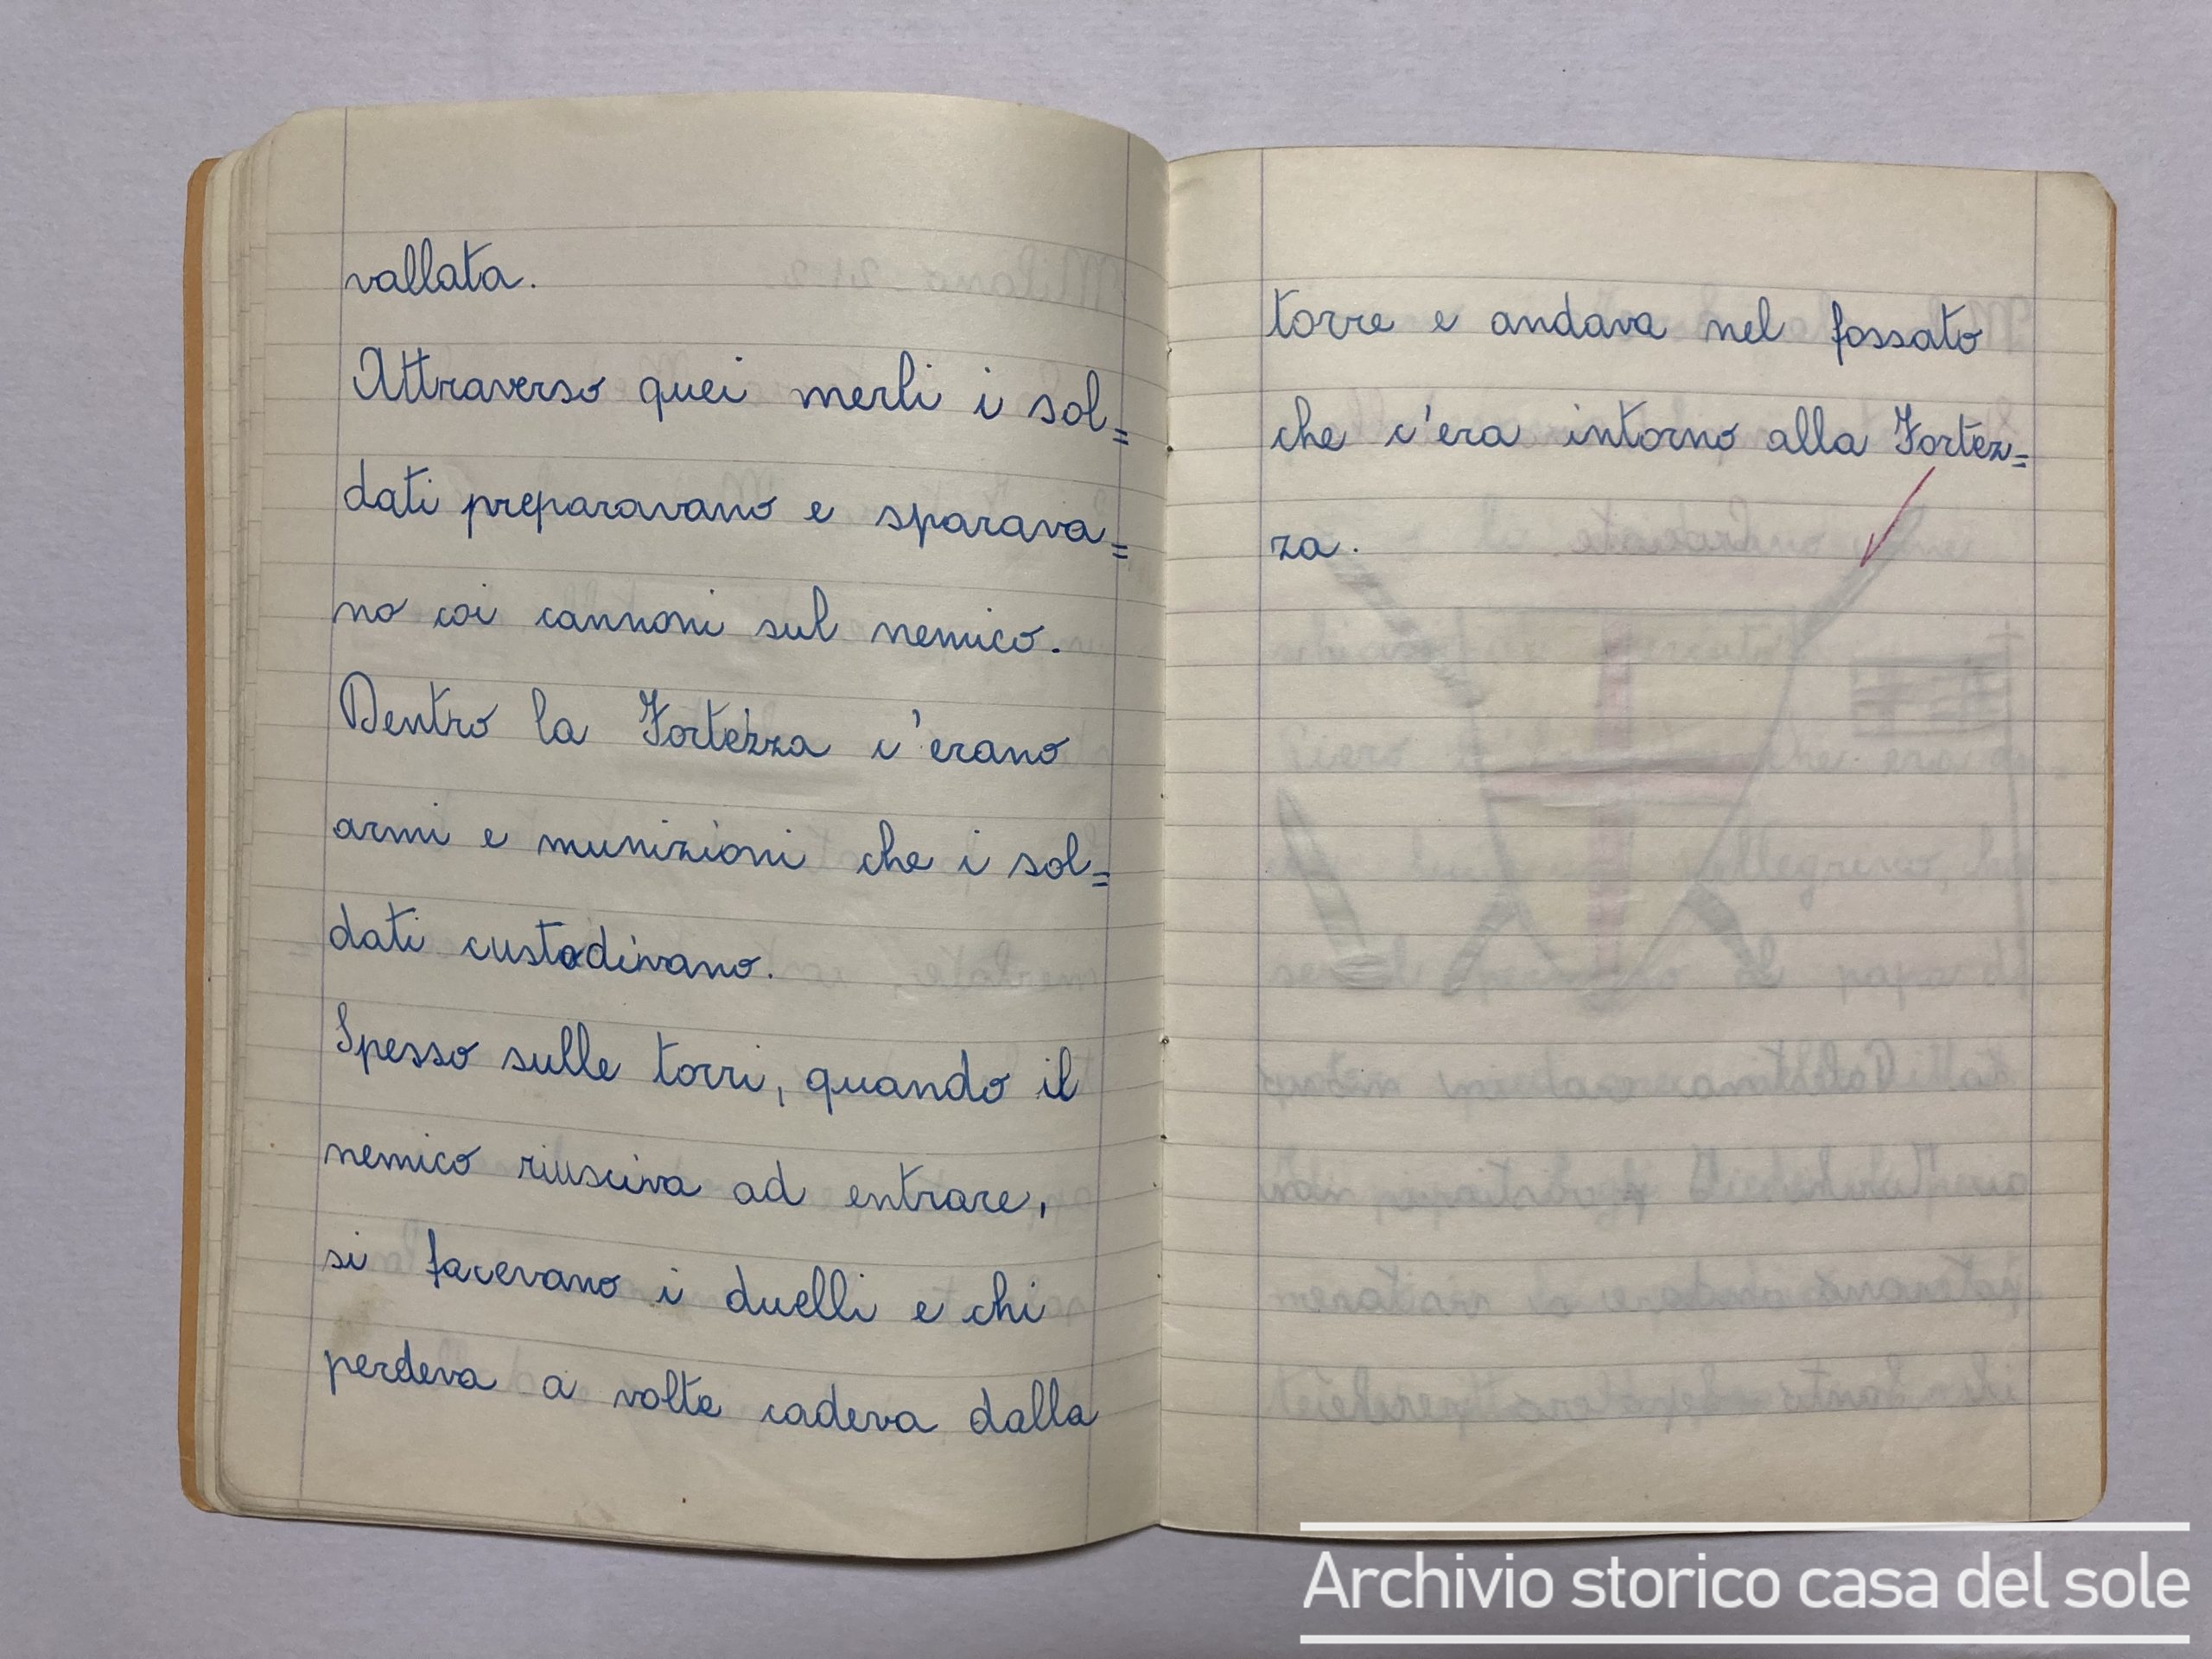 vallata.
Attraverso quei merli i sol=
dati preparavano e sparava=
no coi cannoni sul nemico.
Dentro la Fortezza c'erano
armi e munizioni che i sol=
dati custodivano.
Spesso sulle torri, quando il
nemico riusciva ad entrare,
si facevano i duelli e chi
perdeva a volte cadeva dalla
torre e andava nel fossato
che c'era intorno alla Fortez=
za.
Archivio storico casa del sole